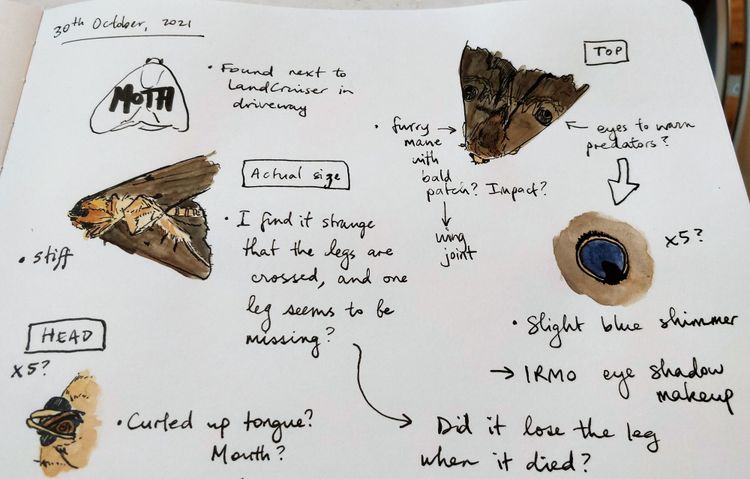 30th October, 2021
MOTH
• Found next to
LandCruiser in
driveway
TOP
• furry
mane
with
bald
patch? Impact?
wing
joint
eyes to warn
predators?
x5?
Actual size
• I find it strange
that the legs are
crossed, and one
leg seems to be
missing?
• stiff
• Slight blue shimmer
→ IRMO eye shadow
makeup
HEAD
x5?
• Curled up tongue?
Mouth?
Did it lose the leg
when it died?